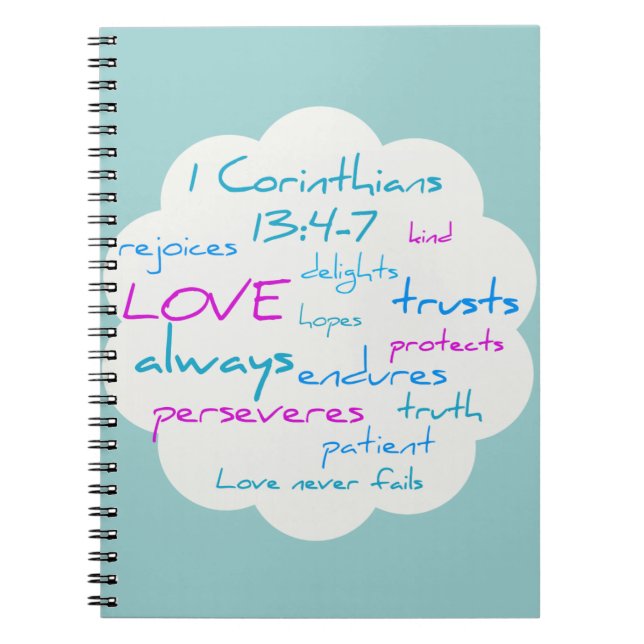 1 Corinthians
13:4-7
kind
rejoices
delights
LOVE
hopes
trusts
always
protects
endures
perseveres
truth
patient
Love never fails